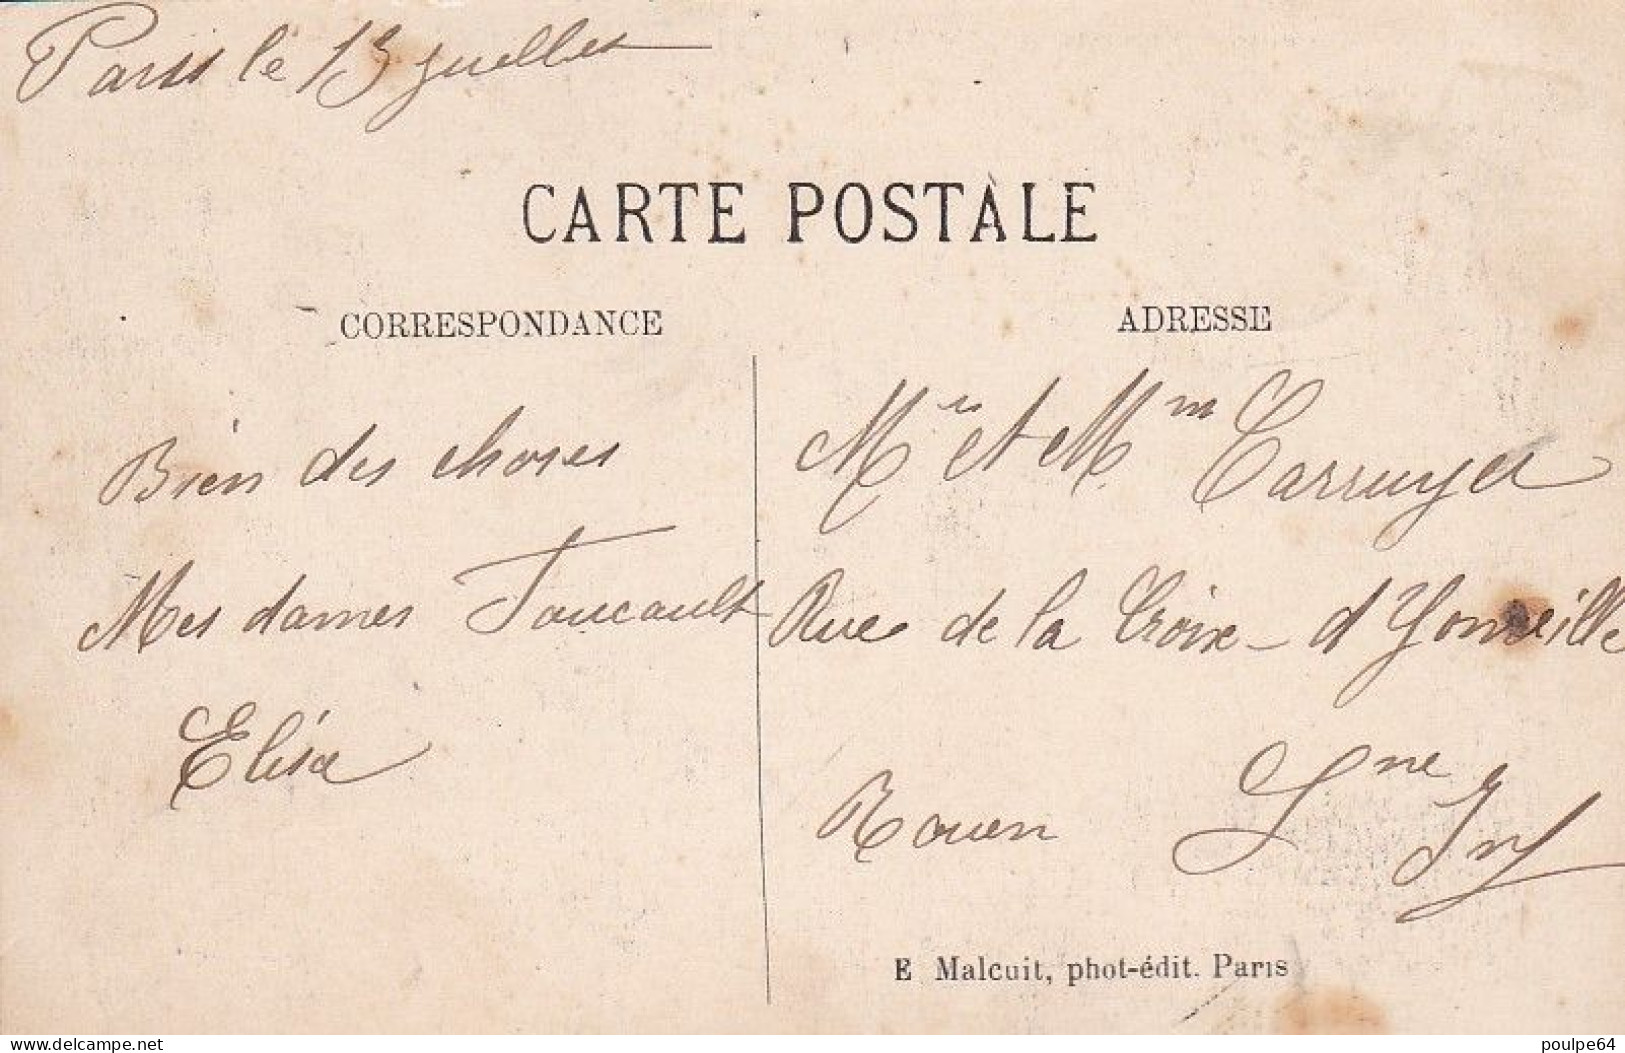 Paris le 13 juellet
CARTE POSTALE
CORRESPONDANCE
ADRESSE
Bien des choses
Mes dames Foucault
Elisa
Mr et Mm Carruyer
Rue de la Croix - d'Yonville
Rouen
Sne Inf
E Malcuit, phot-édit. Paris
delcampe.net
poulpe64